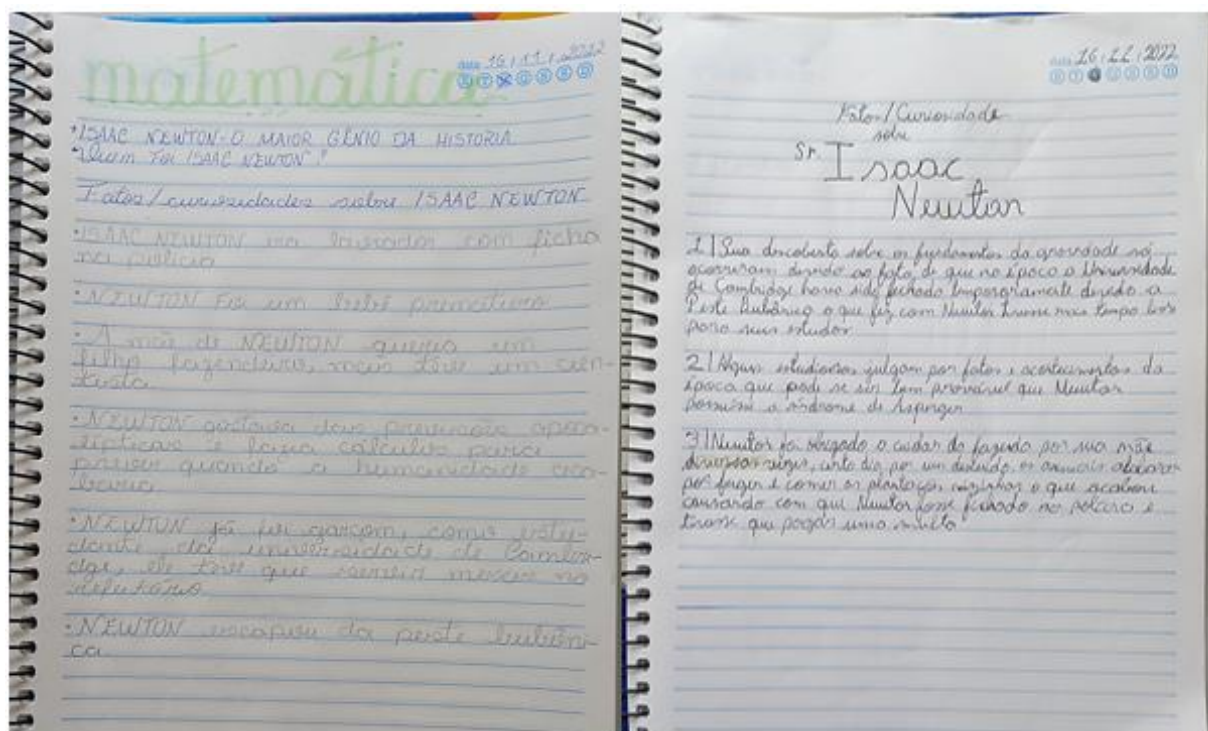 matemática
data 16/11/2022
D S T Q Q S S
*ISAAC NEWTON-O MAIOR GÊNIO DA HISTORIA
*Quem FOI ISAAC NEWTON?
Fatos/curiosidades sobre ISAAC NEWTON
•ISAAC NEWTON era lavrador com ficha
na polícia
•NEWTON FOI um bebê prematuro
•A mãe de NEWTON queria um
filho fazendeiro, mais teve um cien-
tista
•NEWTON gostava das previsões apoca-
lípticas e fazia cálculos para
prever quando a humanidade aca-
baria
•NEWTON já foi garçom, como estu-
dante da universidade de Cambri-
dge, ele teve que servir mesas no
refeitório
•NEWTON escapou da peste bubôni-
ca
data 16/11/2022
Fatos/Curiosidade
sobre
Sr. Isaac
Newton
1| Sua descoberta sobre os fundamentos da gravidade só
ocorreram devido ao fato, de que na época a Universidade
de Cambridge havia sido fechada temporariamente devido a
Peste Bubônica o que fez com Newton tivesse mais tempo livre
para seus estudos
2| Alguns estudiosos julgam por fatos e acontecimentos da
época que pode se ser bem provável que Newton
possuísse a síndrome de Asperger
3| Newton foi obrigado a cuidar da fazenda por sua mãe
diversas vezes, certo dia por um descuido, os animais
por fugir e comer as plantações vizinhas o que acabou
causando com que Newton fosse fichado na polícia e
tivesse que pagar uma multa